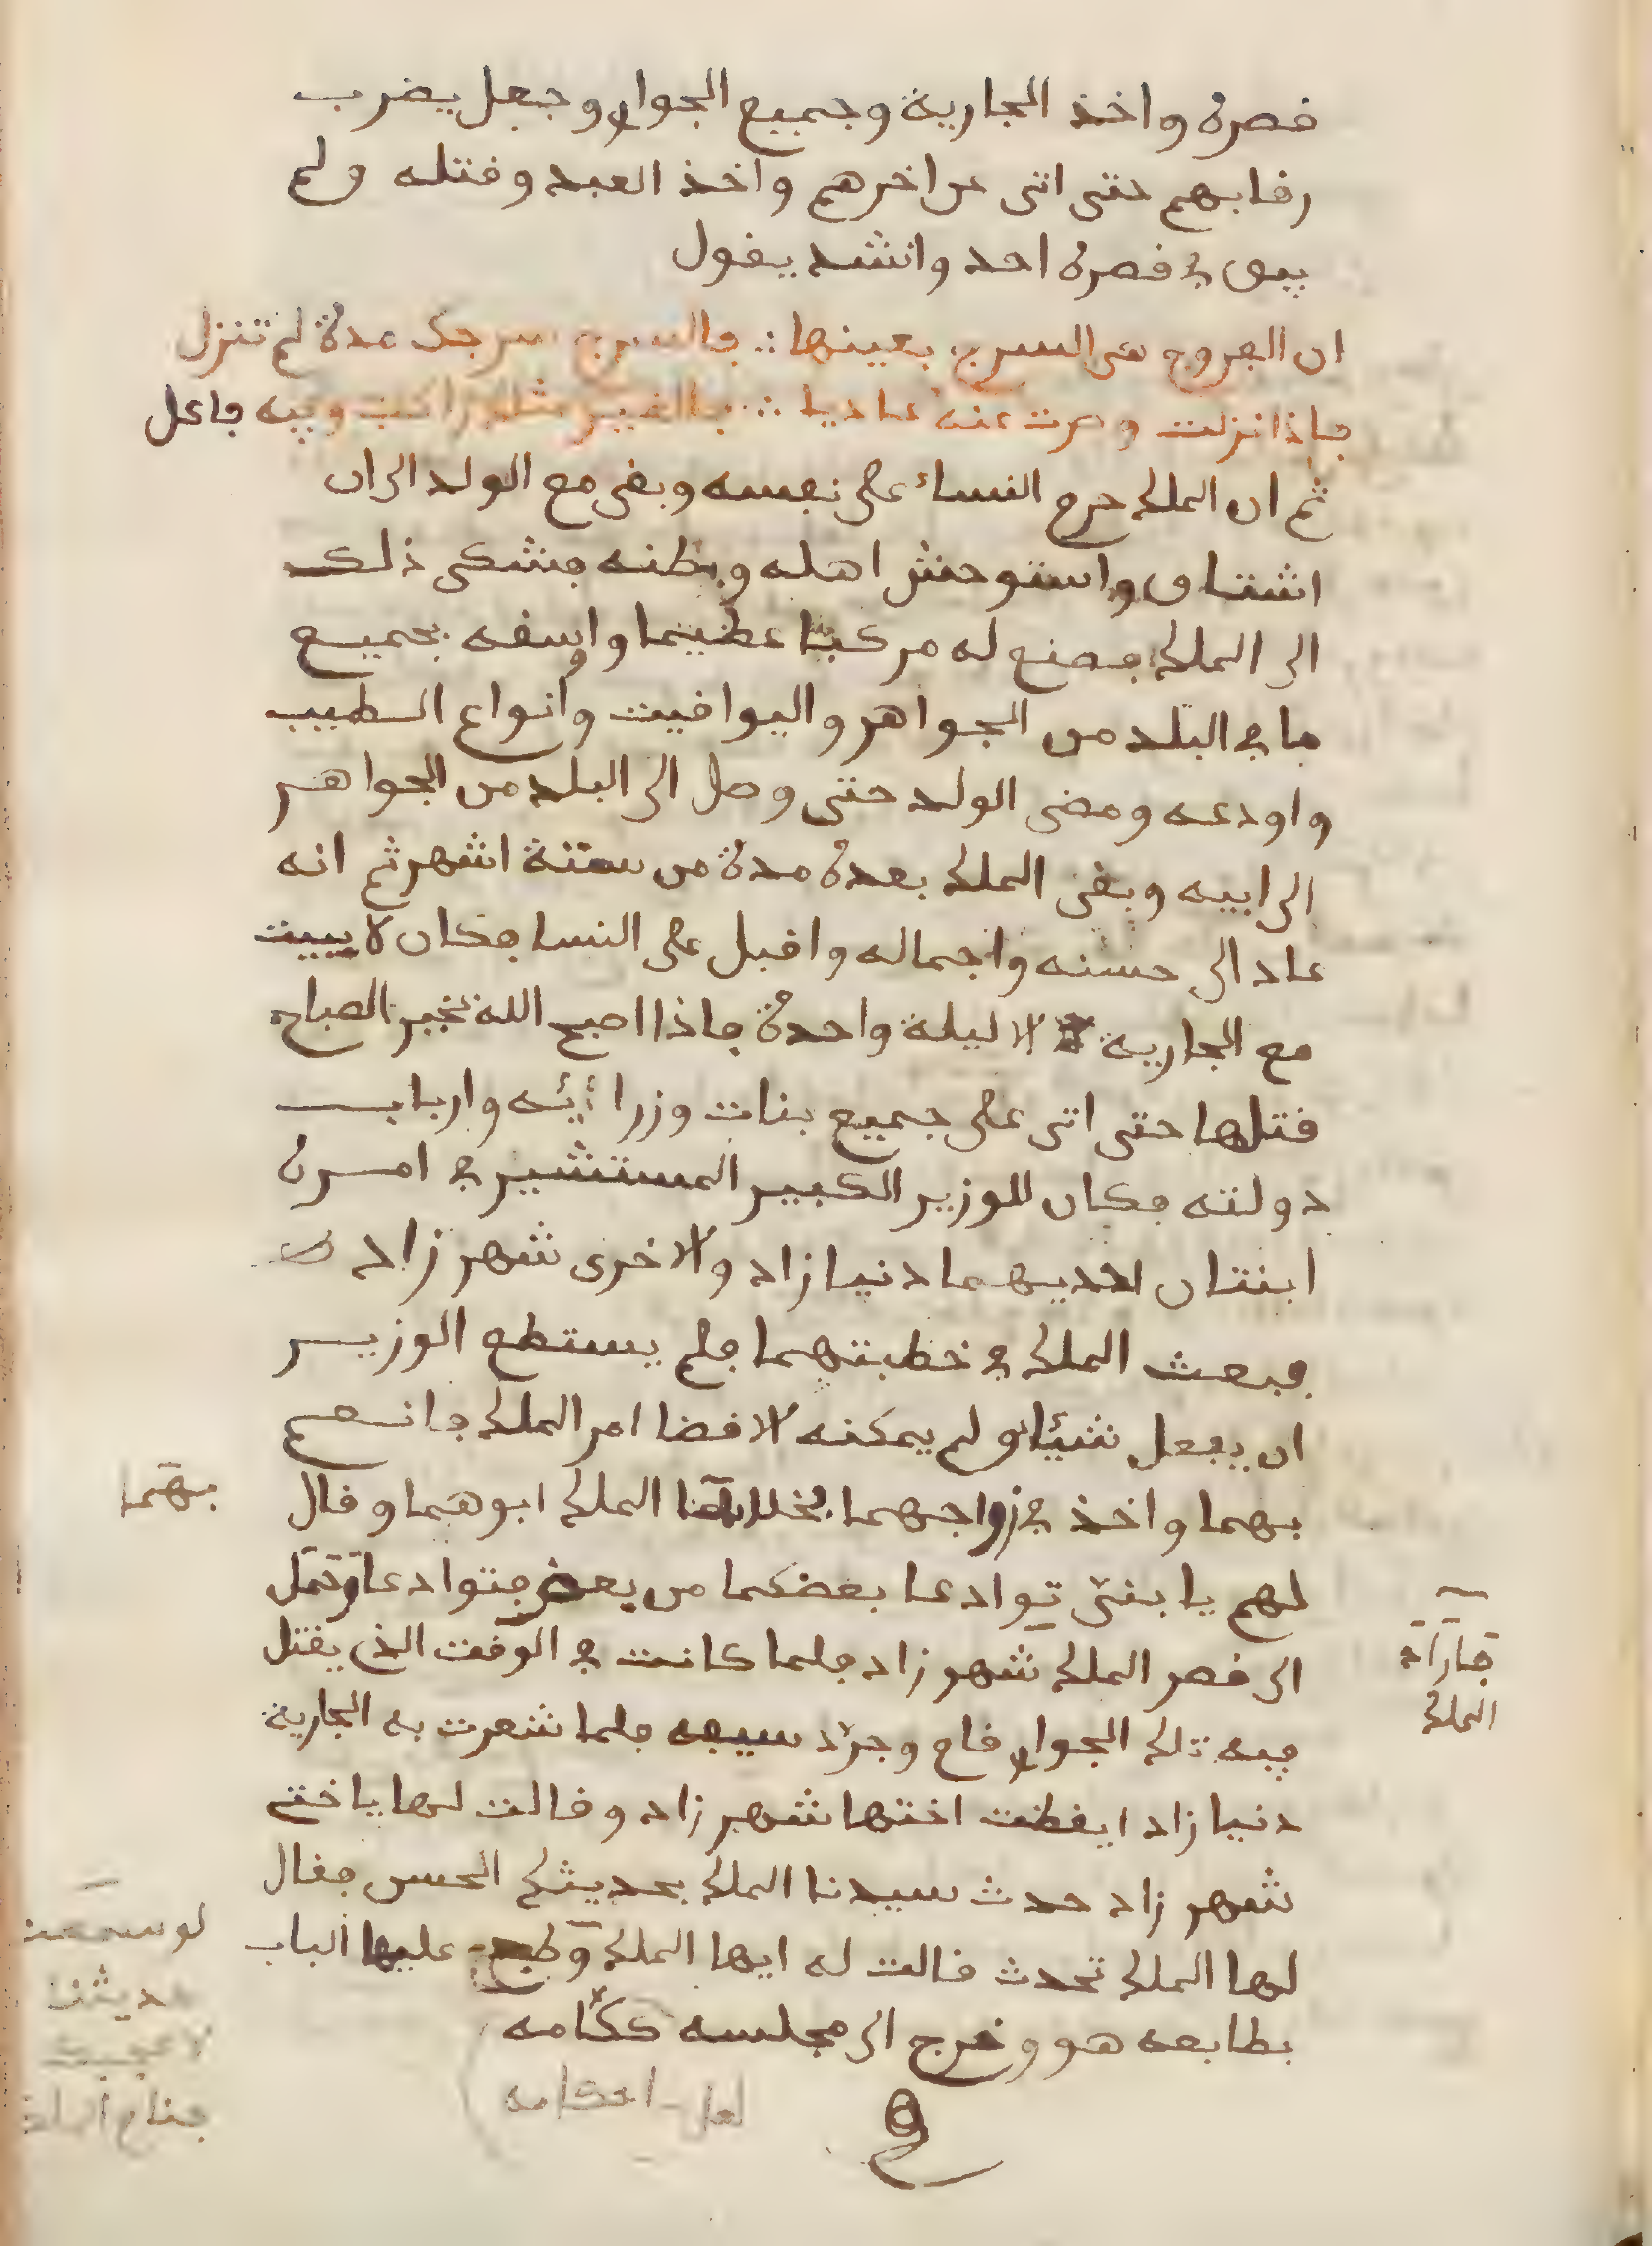 قصره واخذ الجارية وجميع الجوار وجعل يضرب
رقابهم حتى اتى عن اخرهم واخذ العبد وقتله ولم
يبق في قصره احد وانشد يقول
ان الفروج هي السروج بعينها فالسرج سرجك عدة لم تنزل
فاذا نزلت وصرت عنه عاديا فالغير مثلك راكب وفيه فاعل
ثم ان الملك حرم النساء على نفسه وبقى مع الولد الى ان
اشتاق واستوحش اهله ووطنه فشكى ذلك
الى الملك فصنع له مركبا عظيما واوسقه بجميع
ما في البلد من الجواهر واليواقيت وانواع الطيب
واودعه ومضى الولد حتى وصل الى البلد من الجواهر
الى ابيه وبقى الملك بعده مدة من ستة اشهر ثم انه
عاد الى حسنه واجماله واقبل على النسا فكان لا يبيت
مع الجارية الا ليلة واحدة فاذا اصبح الله بخير الصباح
قتلها حتى اتى على جميع بنات وزرائيه وارباب
دولته فكان للوزير الكبير المستشير في امره
ابنتان احديهما دنيا زاد والاخرى شهر زاد
فبعث الملك في خطبتهما فلم يستطع الوزير
ان يفعل شيئا ولم يمكنه الا قضا امر الملك فانعم
بهما واخذ في زواجهما الملك ابوهما وقال
بهما
لهم يا بنتى توادعا بعضكما من بعض فتوادعا
الى قصر الملك شهر زاد فلما كانت في الوقت الذي يقتل
فاراد
الملك
فيه تلك الجوار قام وجرد سيفه فلما شعرت به الجارية
دنيا زاد ايقظت اختها شهر زاد وقالت لها ياختي
شهر زاد حدث سيدنا الملك بحديثك الحسن فقال
لها الملك تحدث قالت له ايها الملك وطبع عليها الباب
لو سمعت
حديثنا
لاعجبك
فقام الملك
بطابعه هو وخرج الى مجلسه ككامه
لعل احكامه